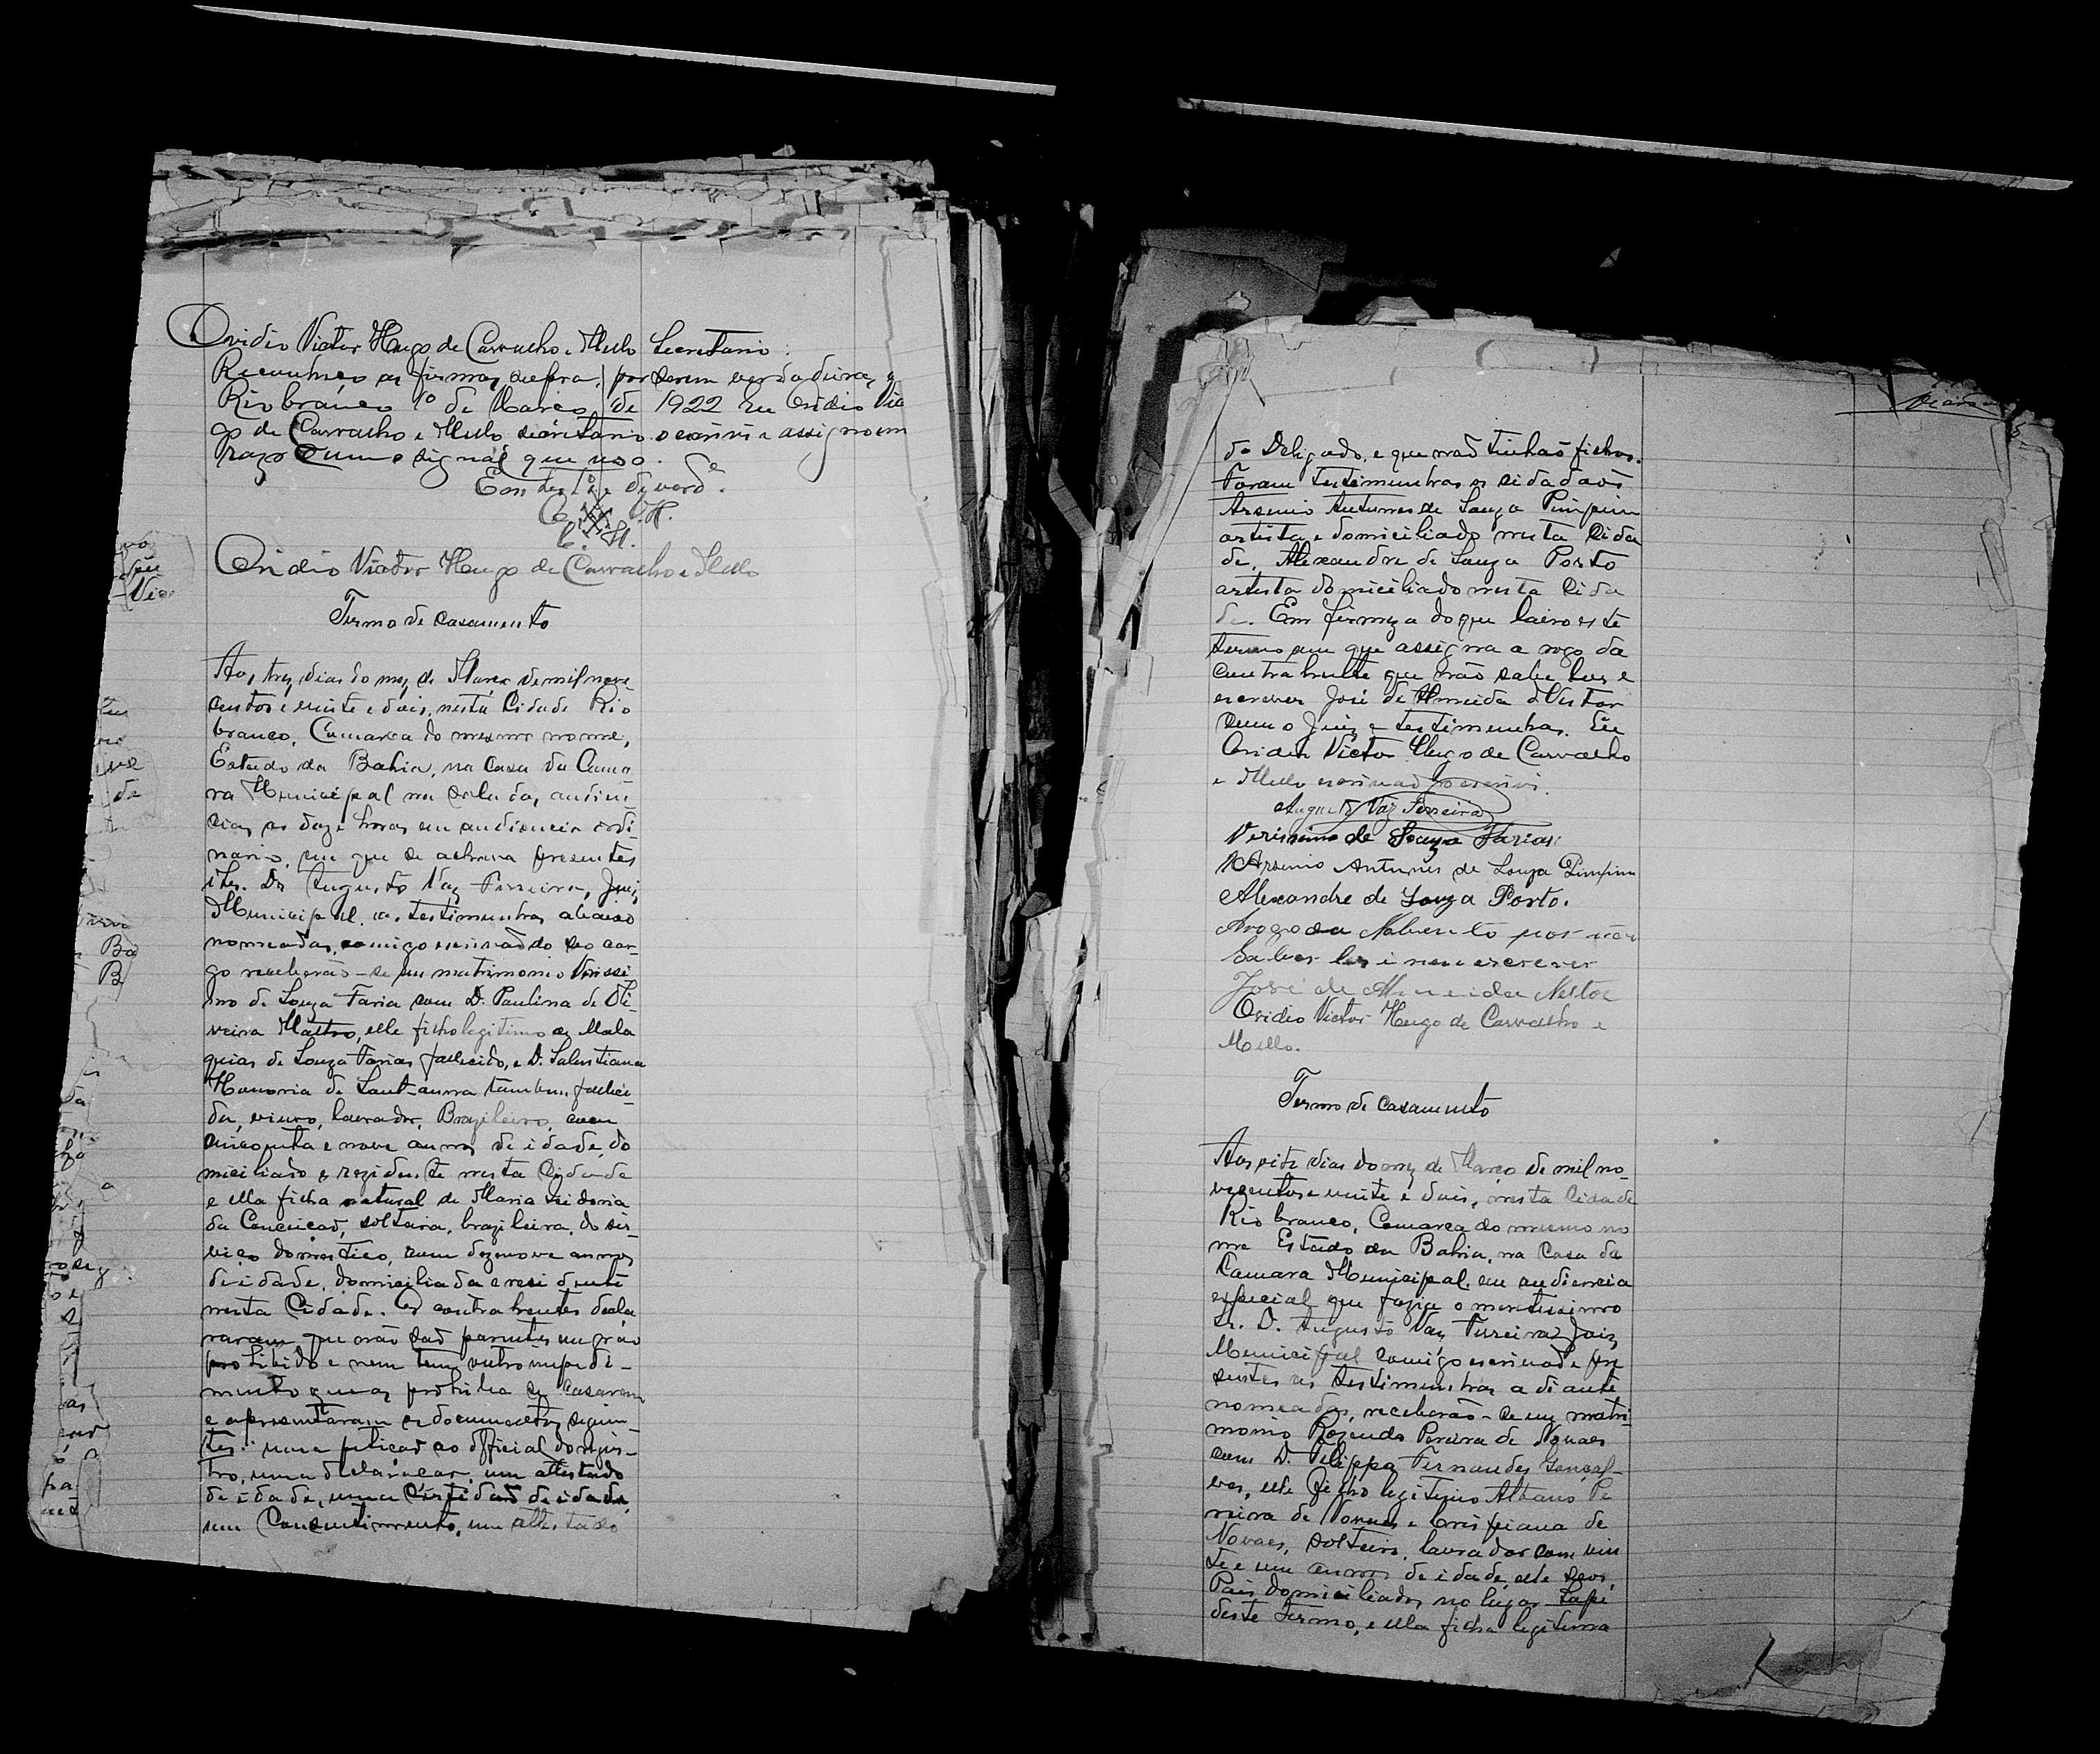 Ovidio Victor Hugo de Carvalho e Mello Secretario.
Reconheço as firmas supra, por serem verdadeiras,
Rio branco 1º de Março de 1922 Eu Ovidio Vic
go de Carvalho e Mello secretario o escrivi e assigno em
razo o signal que uso.
Em test.º de verd.e
Ovidio Victor Hugo de Carvalho e Mello
Termo de casamento
Aos tres dias do mez de Março de mil nove
centos e vinte e dois, nesta Cidade Rio
branco, Comarca do mesmo nome,
Estado da Bahia, na Casa da Cama
ra Municipal na sala das audien
cias, as doze horas em audiencia ordi
naria, em que se achava presentes
Dr. Augusto Vaz Ferreira, Juiz
Municipal, as testimunhas abaixo
nomeadas, comigo escrivaõ do seo car
go receberão-se em matrimonio Verissi
mo de Souza Faria com D. Paulina de Oli
veira Mattos, elle ficho legitimo de Mala
quias de Souza Farias fallecido, e D. Salustiana
Honoria de Sant-anna tambem falleci
da, viuvo, lavrador, Brazileiro, com
cincoenta e nove annos de idade, do
miciliado e rezidente nesta Cidade
e ella ficha natural de Maria
da Conceicaõ, solteira, brazileira, do ser
viço domestico, com dezenove annos
de idade, domiciliada e residente
nesta Cidade. Os contrahentes decla
raram que não saõ parentes em gráo
prohibido e nem tem outro impedi-
mento que os prohiba de casarem
e apresentaram os documentos seguin
tes: uma peticaõ ao official do regis-
tro, uma declaracaõ, um attestado
de idade, uma Certidaõ de idade,
um Consentimento, um attestado
do Delegado, e que naõ tinhaõ fichos.
Foram testimunhas os cidadaõs
Arsenio Antunes de Souza Pimpim
artista e domiciliado nesta Cida
de, Alexandre de Souza Porto
artista domiciliado nesta Cida
de. Em firmeza do que lavro este
termo em que assigna a rogo da
contrahente que não sabe ler e
escrever José de Almeida Nestor
com o Juiz e testimunhas. Eu
Ovidio Victor Hugo de Carvalho
e Mello escrivaõ o escrivi.
Augusto Vaz Ferreira
Verissimo de Souza Farias
Arsenio Antunes de Souza Pimpim
Alexandre de Souza Porto.
Arogo da por não
Saber ler i nem escrever
José de Almeida Nestor
Ovidio Victor Hugo de Carvalho e
Mello.
Termo de casamento
Aos oito dias do mez de Março de mil no
vecentos e vinte e dois, nesta Cidade
Rio branco, Comarca do mesmo no
me Estado da Bahia, na Casa da
Camara Municipal, em audiencia
especial que fazia o meretissimo
Sr. D. Augusto Vaz Ferreira Juiz
Municipal comigo escrivaõ e pre
sentes as testimunhas a diante
nomeadas, receberão-se em matri
monio Rozendo Pereira de Novaes
com D. Felippa Fernandes Gonçal-
ves, elle ficho legitimo Albano Pe
reira de Novaes e Crispiana de
Novaes, solteiro, lavrador com vin
te e um annos de idade, elle seos
Pais domiciliados no lugar
deste termo, e ella ficha legitima